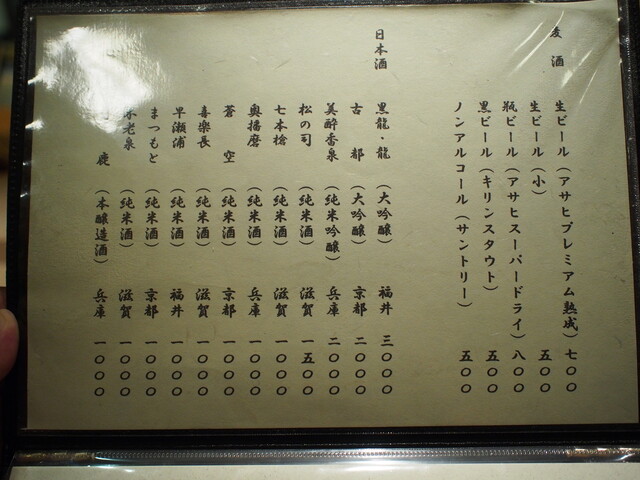 麦酒
生ビール（アサヒプレミアム熟成）七〇〇
生ビール（小）五〇〇
瓶ビール（アサヒスーパードライ）八〇〇
黒ビール（キリンスタウト）五〇〇
ノンアルコール（サントリー）五〇〇
日本酒
黒龍・龍（大吟醸）福井 三〇〇〇
古都（大吟醸）京都 二〇〇〇
美酔香泉（純米吟醸）兵庫 二〇〇〇
松の司（純米酒）滋賀 一五〇〇
七本槍（純米酒）滋賀 一〇〇〇
奥播磨（純米酒）兵庫 一〇〇〇
蒼空（純米酒）京都 一〇〇〇
喜楽長（純米酒）滋賀 一〇〇〇
早瀬浦（純米酒）福井 一〇〇〇
まつもと（純米酒）京都 一〇〇〇
老泉（純米酒）滋賀 一〇〇〇
鹿（本醸造酒）兵庫 一〇〇〇